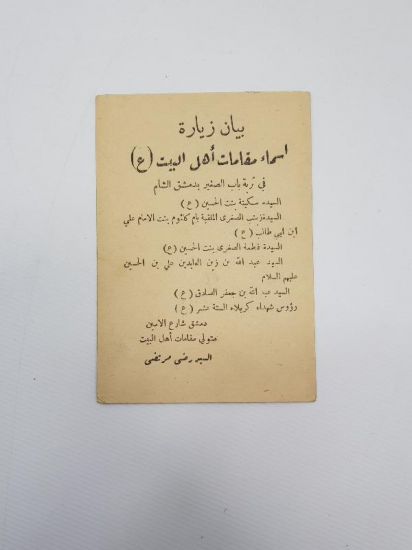 بيان زيارة
اسماء مقامات أهل البيت (ع)
في تربة باب الصغير بدمشق الشام
السيدة سكينة بنت الحسين (ع)
السيدة زينب الصغرى الملقبة بام كلثوم بنت الامام علي
ابن ابي طالب (ع)
السيدة فاطمة الصغرى بنت الحسين (ع)
السيد عبد الله بن زين العابدين علي بن الحسين
عليهم السلام
السيد عبد الله بن جعفر الصادق (ع)
رؤوس شهداء كربلاء الستة عشر (ع)
دمشق شارع الامين
متولي مقامات أهل البيت
السيد رضى مرتضى